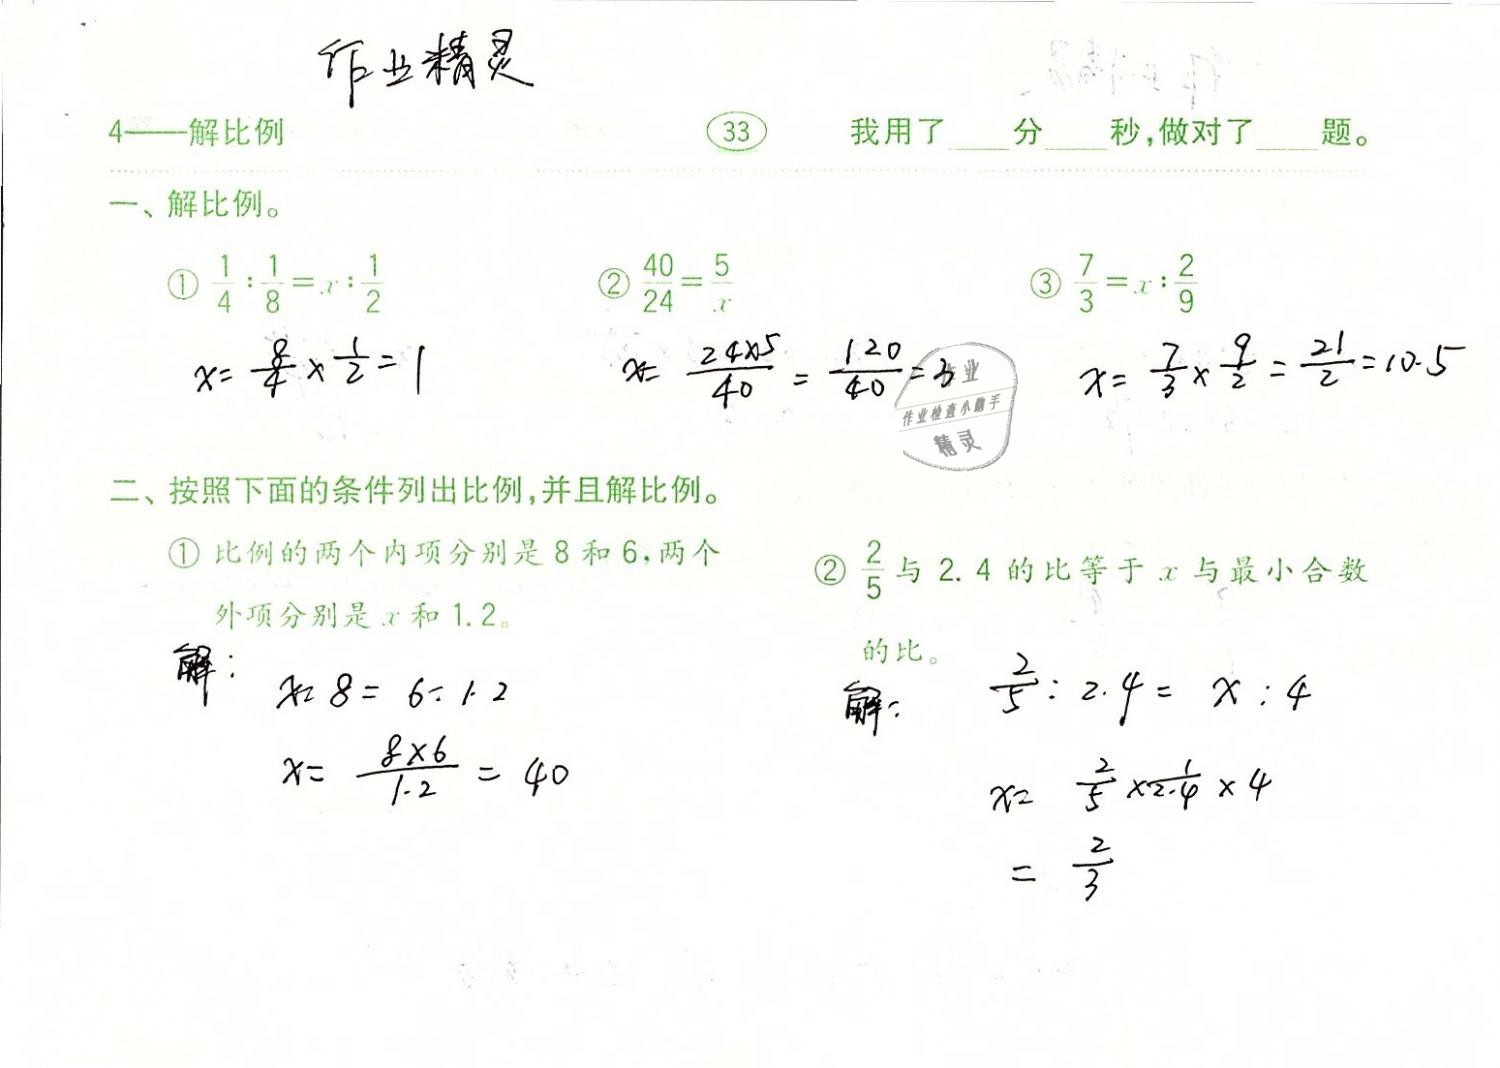 作业精灵
4——解比例 33 我用了____分____秒,做对了____题。
一、解比例。
① 1/4 : 1/8 = x : 1/2 ② 40/24 = 5/x ③ 7/3 = x : 2/9
x= 8/4 × 1/2 = 1 x= 24×5/40 = 120/40 = 3 x= 7/3 × 9/2 = 21/2 = 10.5
作业
作业检查小助手
精灵
二、按照下面的条件列出比例,并且解比例。
① 比例的两个内项分别是 8 和 6,两个
外项分别是 x 和 1.2。
② 2/5 与 2.4 的比等于 x 与最小合数
的比。
解: x: 8 = 6: 1.2
x= 8×6/1.2 = 40
解: 2/5 : 2.4 = x : 4
x= 2/5 × 1/2.4 × 4
= 2/3